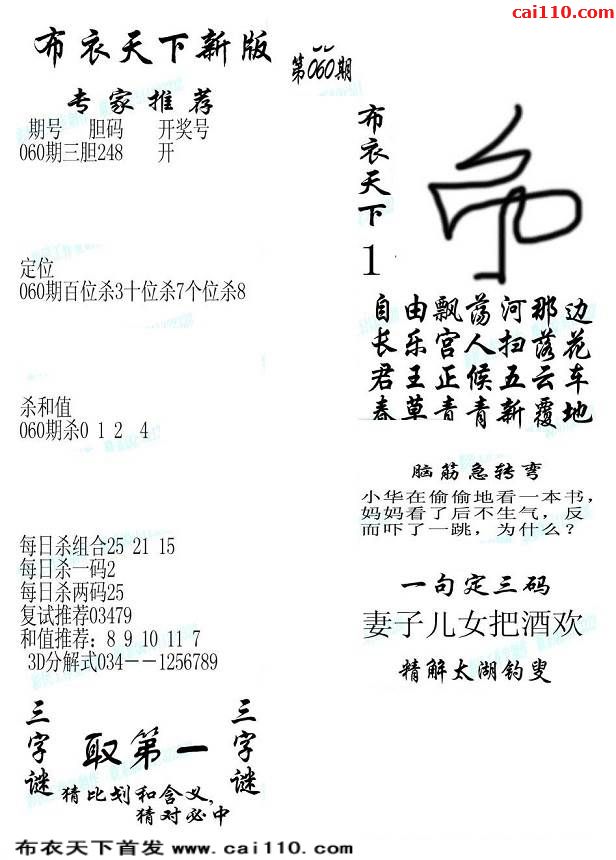 cai110.com
布衣天下新版
第060期
专家推荐
期号 胆码 开奖号
060期三胆248 开
定位
060期百位杀3十位杀7个位杀8
杀和值
060期杀0 1 2 4
每日杀组合25 21 15
每日杀一码2
每日杀两码25
复试推荐03479
和值推荐：8 9 10 11 7
3D分解式034－－1256789
三字谜
取第一
三字谜
猜比划和含义，
猜对必中
布衣天下
1
自由飘荡河那边
长乐宫人扫落花
君王正候五云车
春草青青新覆地
脑筋急转弯
小华在偷偷地看一本书，
妈妈看了后不生气，反
而吓了一跳，为什么？
一句定三码
妻子儿女把酒欢
精解太湖钓叟
布衣天下首发 www.cai110.com